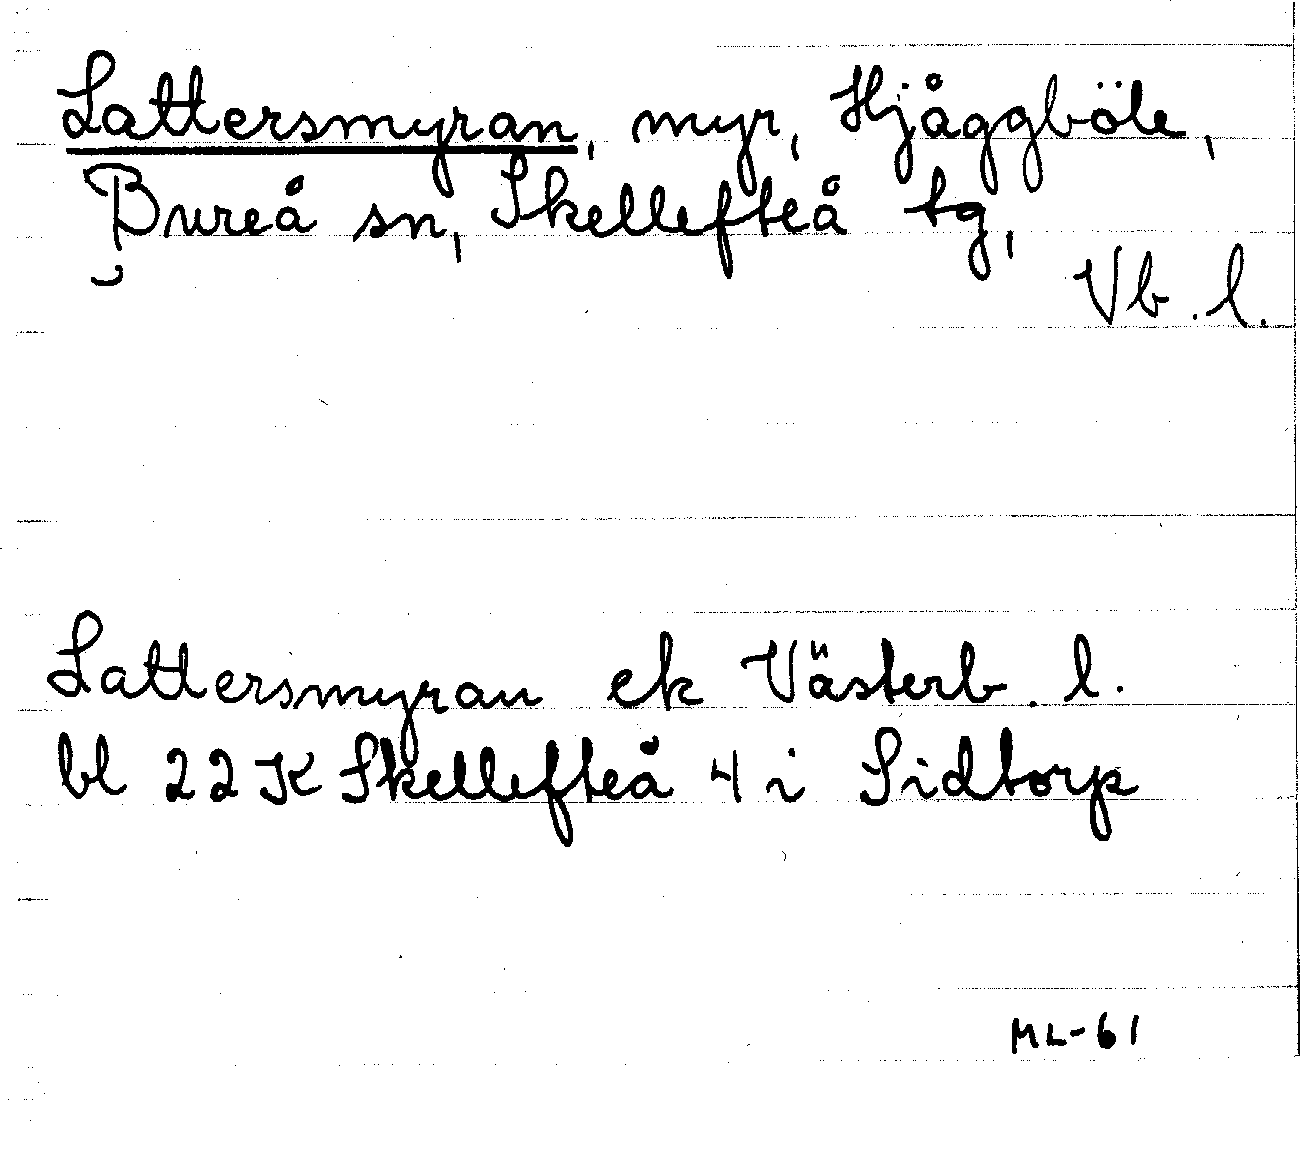 Lattersmyran, myr, Hjåggböle,
Bureå sn, Skellefteå tg,
Vb. l.
Lattersmyran ek Västerb. l.
bl 22 K Skellefteå 4 i Sidtorp
ML-61